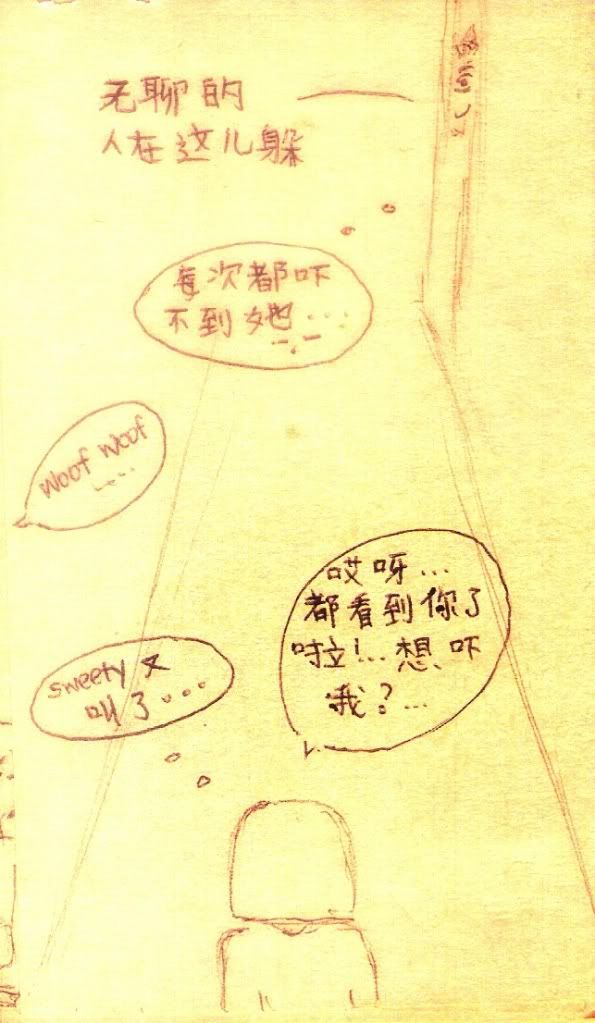 无聊的
人在这儿躲
每次都吓
不到她...
woof woof
....
哎呀...
都看到你了
啦!...想吓
我?...
sweety又
叫了...